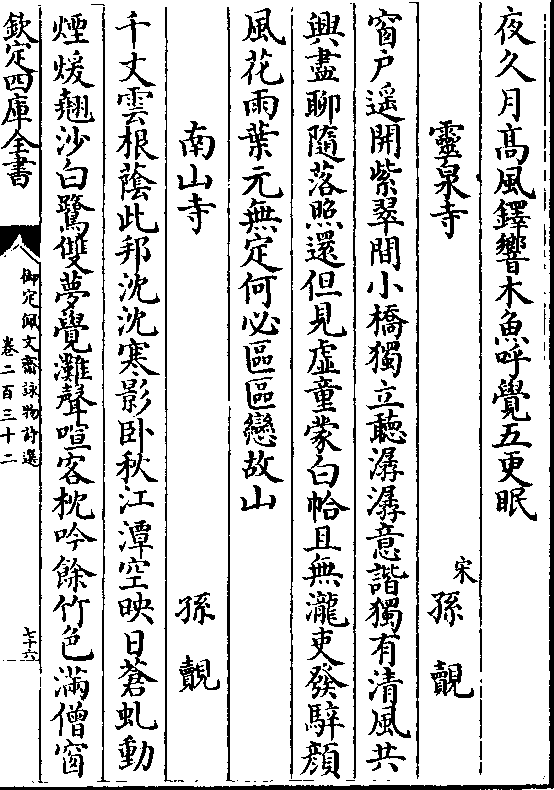 夜久月髙風鐸響木魚呼覺五更眠
靈泉寺　宋孫覿
窗户遥開紫翠間小橋獨立聽潺潺意諧獨有清風共
興盡聊隨落照還但見虚童蒙白帢且無瀧吏發騂顔
風花雨葉元無定何必區區戀故山
南山寺　孫覿
千丈雲根蔭此邦沈沈寒影卧秋江潭空映日蒼虬動
煙煖翹沙白鷺雙夢覺灘聲喧客枕吟餘竹色滿僧窗
欽定四庫全書
御定佩文齋詠物詩選
卷二百三十二
七十六